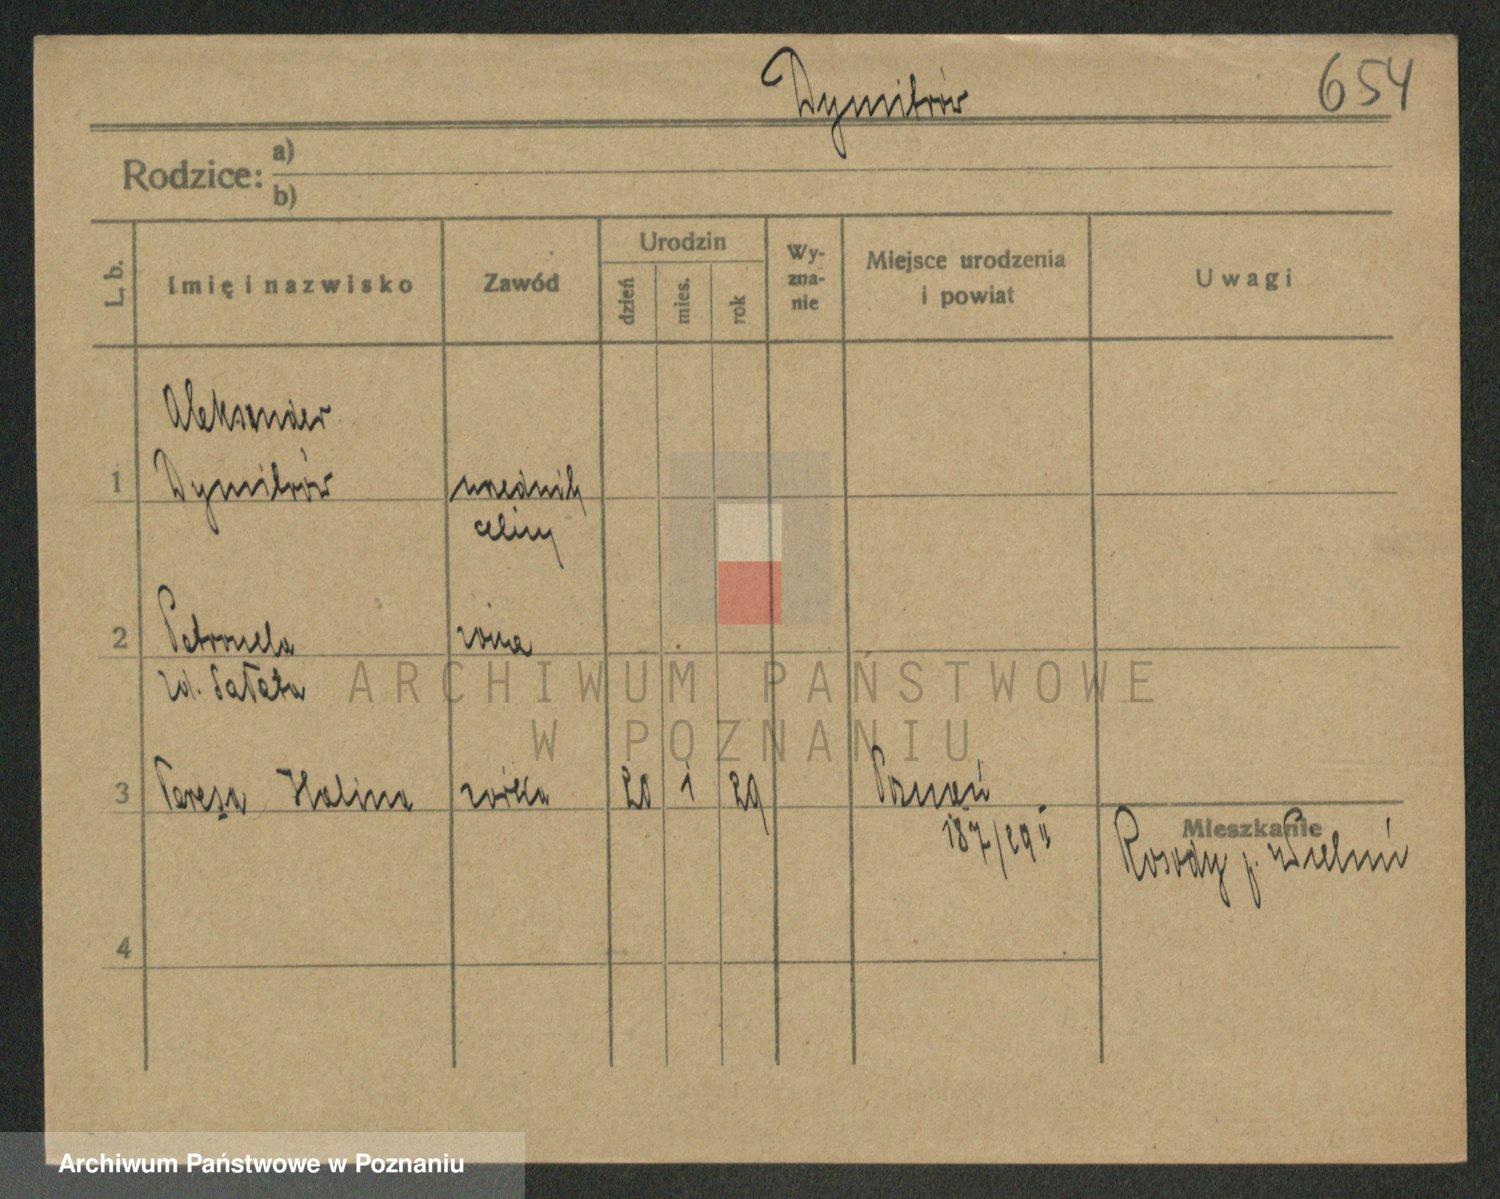 Dymitrów
654
Rodzice: a)
b)
L. b.
Imię i nazwisko
Zawód
Urodzin
dzień
mies.
rok
Wy-
zna-
nie
Miejsce urodzenia
i powiat
Uwagi
Aleksander
1 Dymitrów urzednik
celny
2 Petronela żona
zd. Sałata
ARCHIWUM PAŃSTWOWE
W POZNANIU
3 Teresa Halina córka 20 i 29 Poznań
187/29 ii
Mieszkanie
p.
4
Archiwum Państwowe w Poznaniu